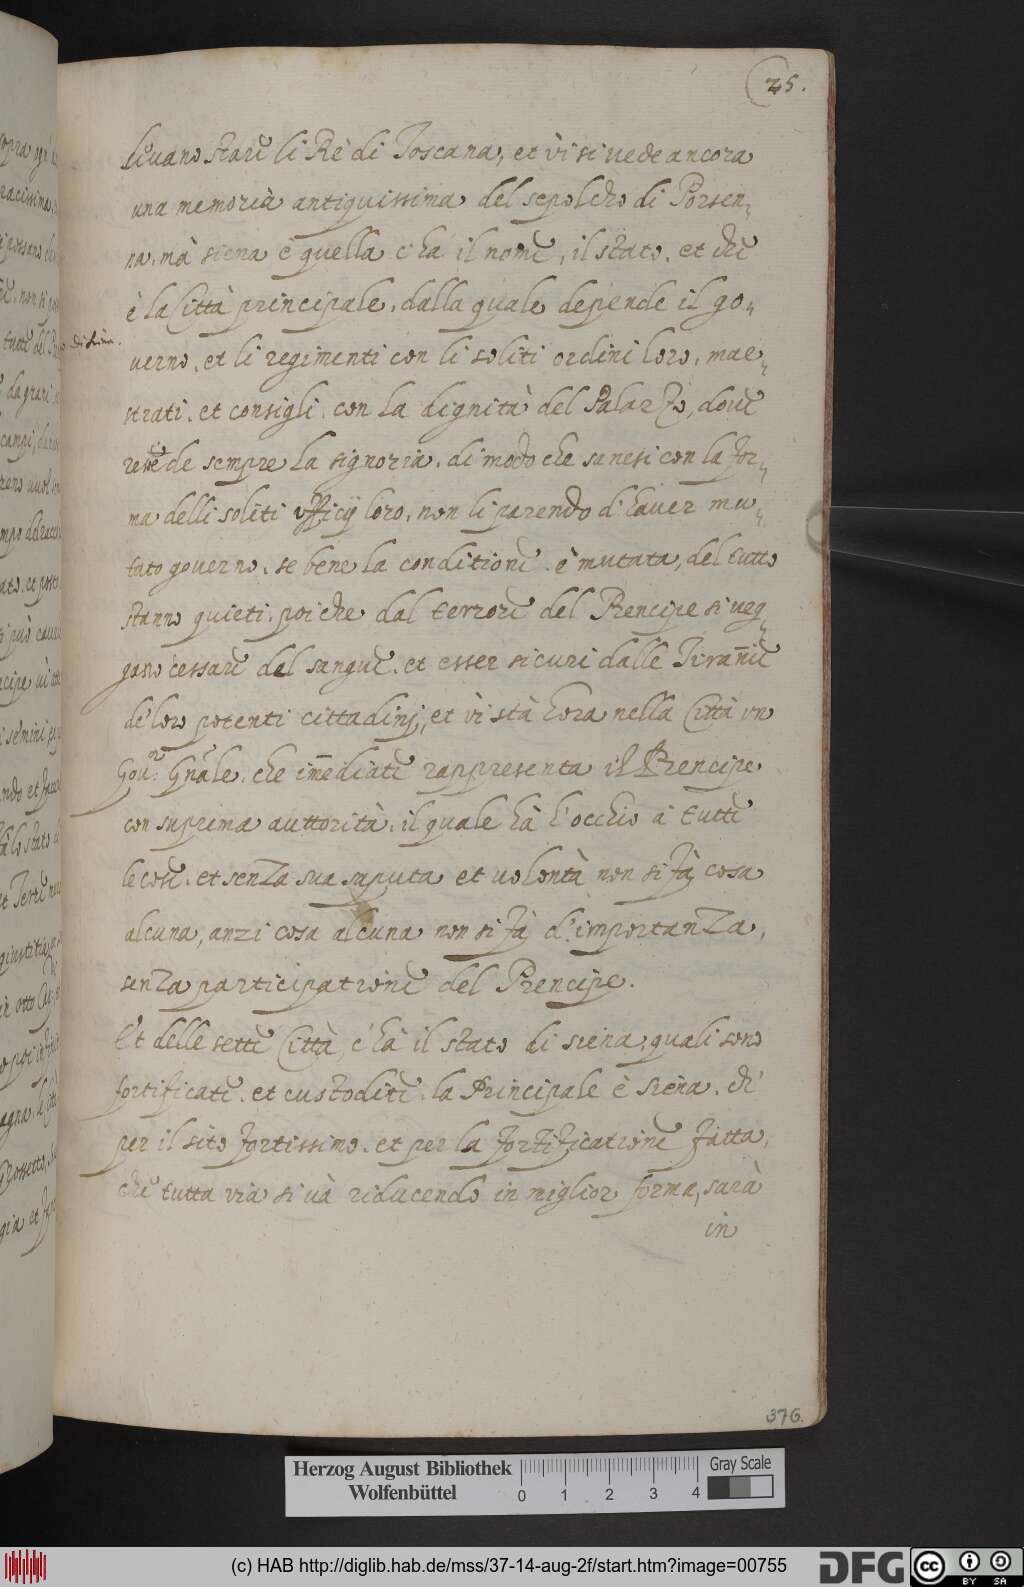 25.
levano stare li Rè di Toscana, et vi si vede ancora
una memoria antiquissima del sepolchro di Porsen-
na, mà siena è quella c'hà il nome, il stato, et che
è la Città principale, dalla quale depende il go-
verno, et li regimenti con li soliti ordini loro, mae-
strati, et consigli, con la dignità del Palazzo, dove
resiede sempre la signoria, di modo che sanesi con la for-
ma delli soliti ufficij loro, non li parendo d'haver mu-
tato governo, se bene la conditione è mutata, del tutto
stanno quieti, poiche dal terrore del Prencipe si veg-
gono cessare del sangue, et esser sicuri dalle Tirannie
de' loro potenti cittadini, et vi stà hora nella Città un
Gov.r Gnãle, che im̃ediate rappresenta il Prencipe
con suprema auttorità, il quale hà l'occhio à tutte
le cose, et senza sua saputa et volontà non si fà cosa
alcuna, anzi cosa alcuna non si fà d'importanza,
senza participatione del Prencipe.
Et delle sette Città, c'hà il stato di siena, quali sono
fortificate, et custodite, la Principale è Siena, ch'
per il sito fortissimo, et per la fortificatione fatta,
che tutta via si và riducendo in miglior forma, sarà
in
376.
Herzog August Bibliothek
Wolfenbüttel
0 1 2 3 4
Gray Scale
(c) HAB http://diglib.hab.de/mss/37-14-aug-2f/start.htm?image=00755
DFG
cc BY SA